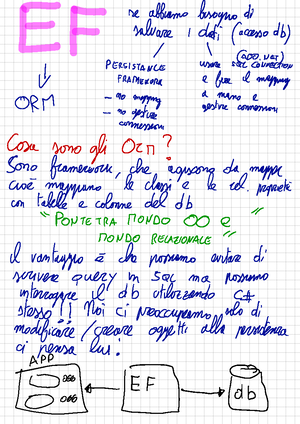 EF
se abbiamo bisogno di
salvare i dati (accesso db)
PERSISTANCE
FRAMEWORK
- no mapping
- no gestione
connessioni
(ADO.NET)
usare SQL CONNECTION
e fare il mapping
a mano e
gestire connessioni
ORM
Cosa sono gli ORM?
Sono framework, che agiscono da mapper
cioè mappiamo le classi e le rel. proprietà
con tabelle e colonne del db
"PONTE TRA MONDO OO E
MONDO RELAZIONALE"
il vantaggio è che possiamo evitare di
scrivere query in SQL ma possiamo
interrogare il db utilizzando C#
stesso!! Noi ci preoccupiamo solo di
modificare/creare oggetti alla persistenza
ci pensa lui!
APP
EF
db